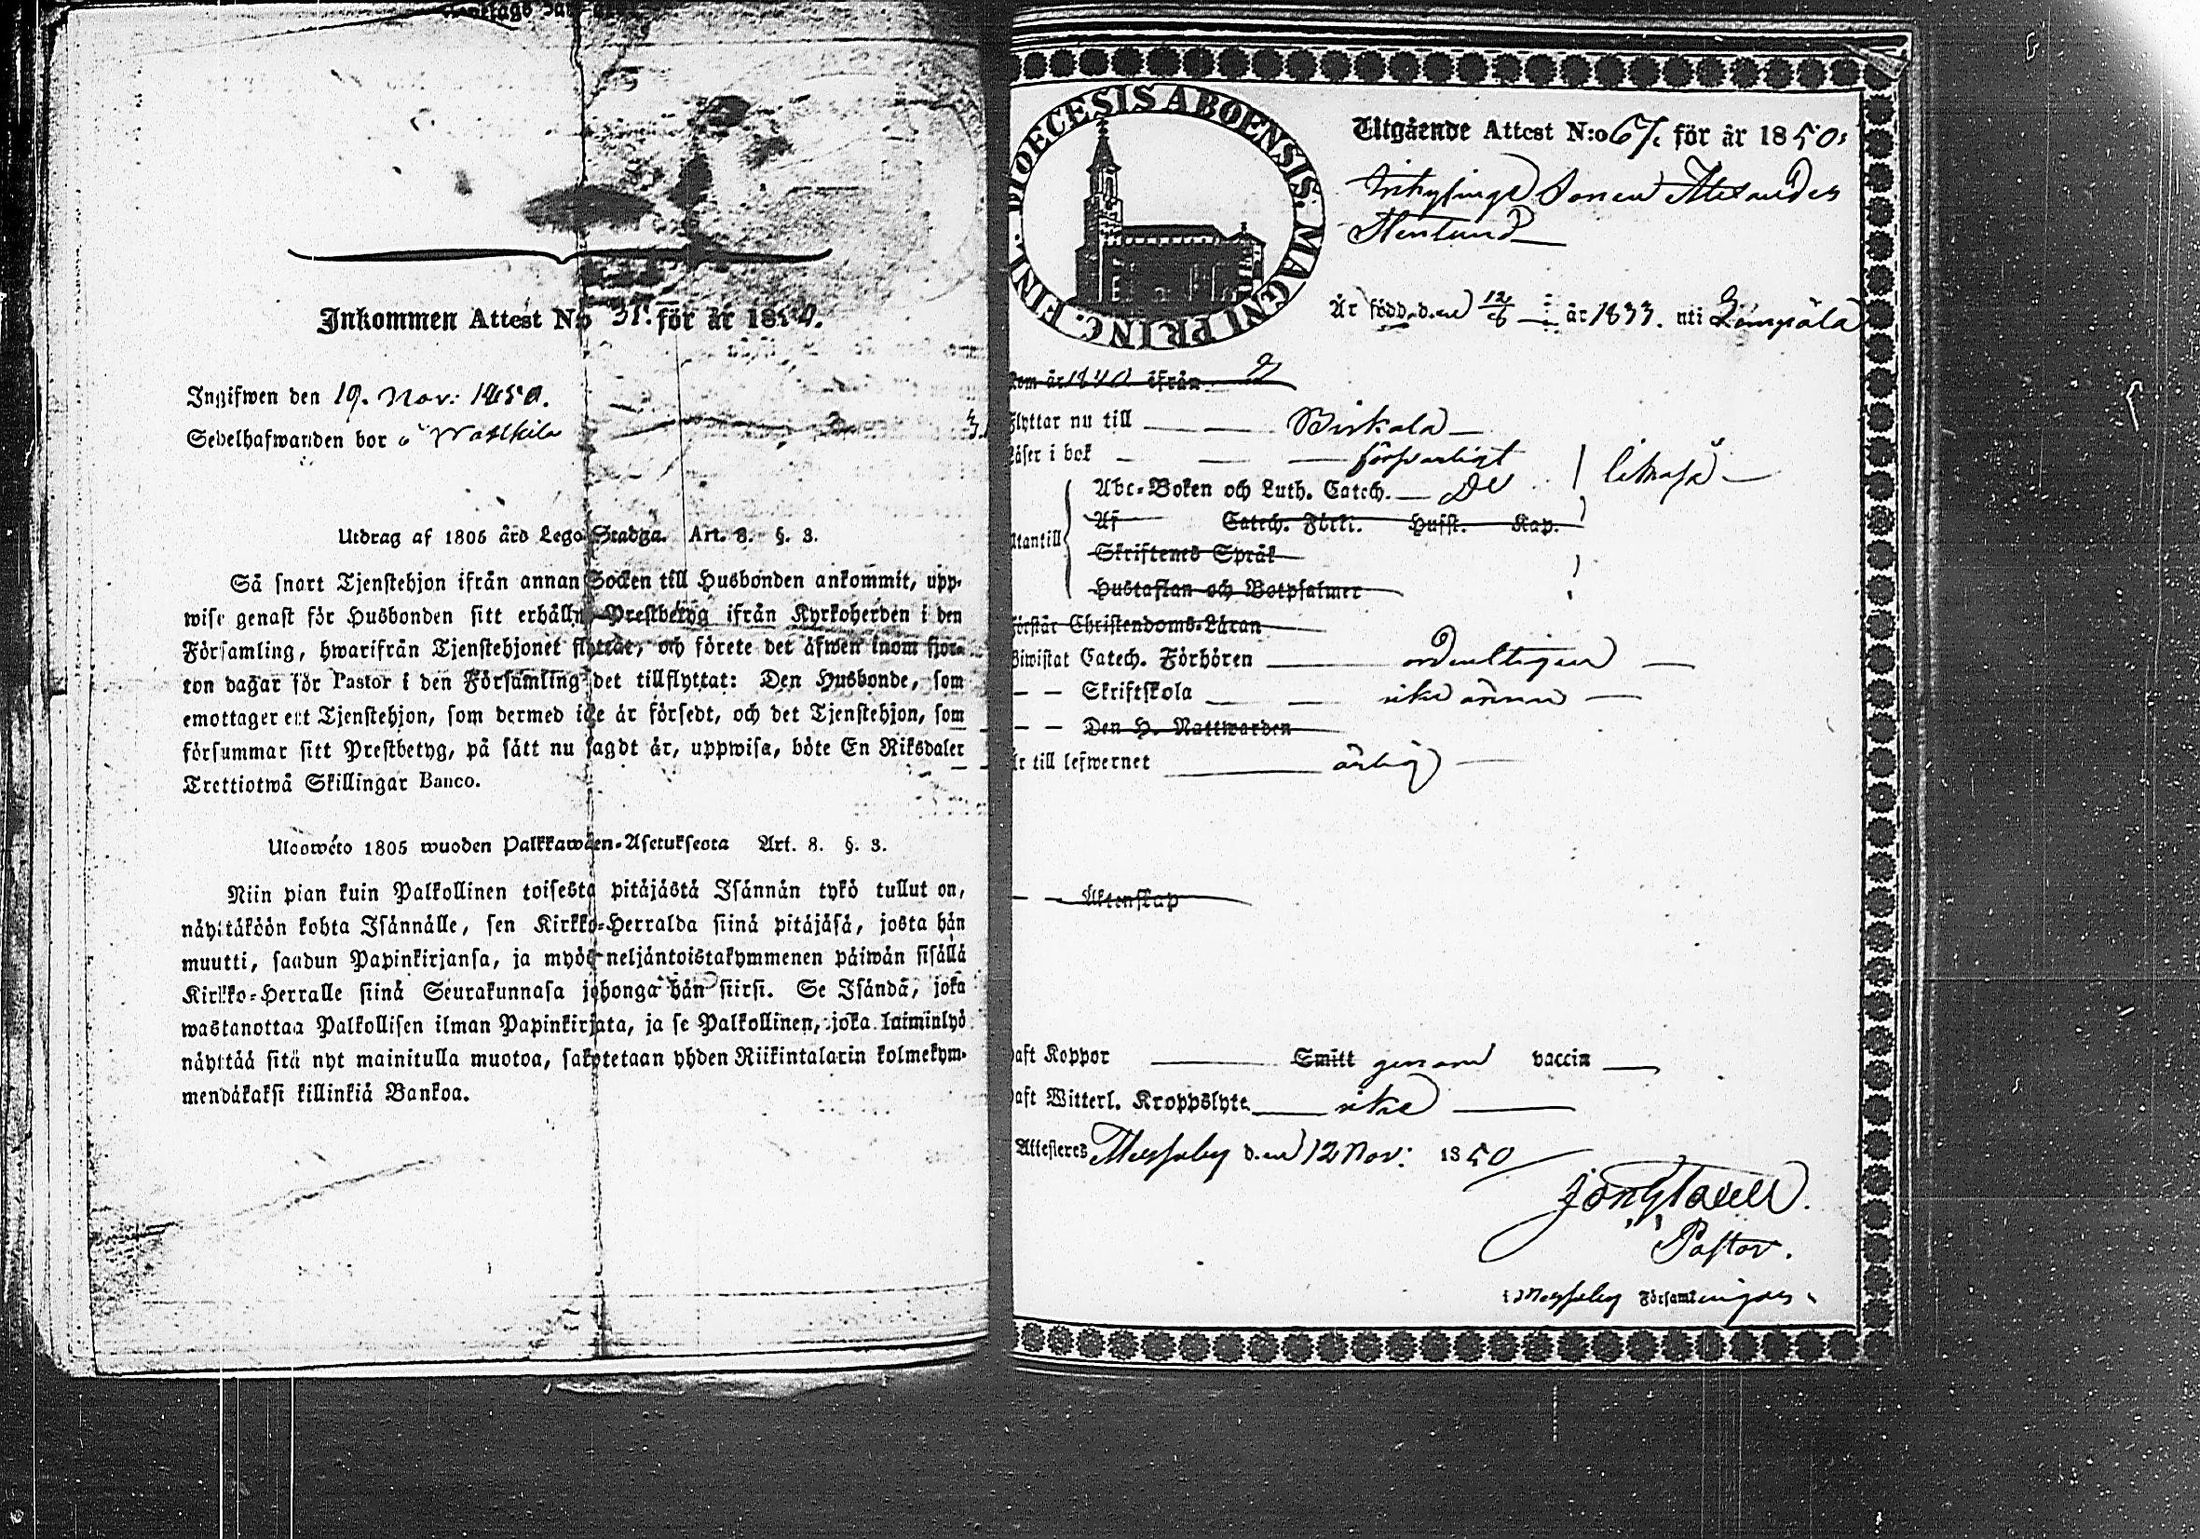 Inkommen Attest N:o 31. för år 1850.
Ingifwen den 19. Nov: 1850.
Sedelhafwanden bor å
Utdrag af 1805 års Lego-Stadga. Art. 8. §. 3.
Så snart Tjenstehjon ifrån annan Socken till Husbonden ankommit, upp-
wise genast för Husbonden sitt erhållna Prestbetyg ifrån Kyrkoherden i den
Församling, hwarifrån Tjenstehjonet flyttat, och förete det äfwen inom fjor-
ton dagar för Pastor i den Församling det tillflyttat: Den Husbonde, som
emottager ett Tjenstehjon, som dermed icke är försedt, och det Tjenstehjon, som
försummar sitt Prestbetyg, på sätt nu sagdt är, uppwisa, böte En Riksdaler
Trettiotwå Skillingar Banco.
Ulosweto 1805 wuoden Palkkawäen-Asetuksesta Art. 8. §. 3.
Niin pian kuin Palkollinen toisesta pitäjästä Isännän tykö tullut on,
näyttäköön kohta Isännälle, sen Kirkko-Herralda siinä pitäjäsä, josta hän
muutti, saadun Papinkirjansa, ja myös neljäntoistakymmenen päiwän sisällä
Kirkko-Herralle siinä Seurakunnasa johonga hän siirsi. Se Isändä, joka
wastanottaa Palkollisen ilman Papinkirjata, ja se Palkollinen, joka laiminlyö
näyttää sitä nyt mainitulla muotoa, sakotetaan yhden Riikintalarin kolmekym-
mendäkaksi killinkiä Bankoa.
DIOECESIS ABOENSIS. MAGNI PRINC. FINL.
Utgående Attest N:o 67. för år 1850.
Inhysings Sonen Alexander
Stenlund
Är född den 12/8 år 1833. uti Lempälä
kom år 1840 ifrån
flyttar nu till Birkala
Läser i bok försvarligt
Abc-Boken och Luth. Catech. D:o
Af Catech. Förkl. Husst. Kap.
Utantill
Skriftenes Språk
Hustaflan och Botpsalmer
förstår Christendoms-Läran
Biwistat Catech. Förhören ordentligen
— — Skriftskola icke ännu
— — Den H. Nattwarden
Är till lefwernet ärlig
— — Äktenskap
haft Koppor Smitt genom vaccin
haft Witterl. Kroppslyte icke
Attesteres Messuby den 12 Nov: 1850
Pastor.
i Messuby Församlingar